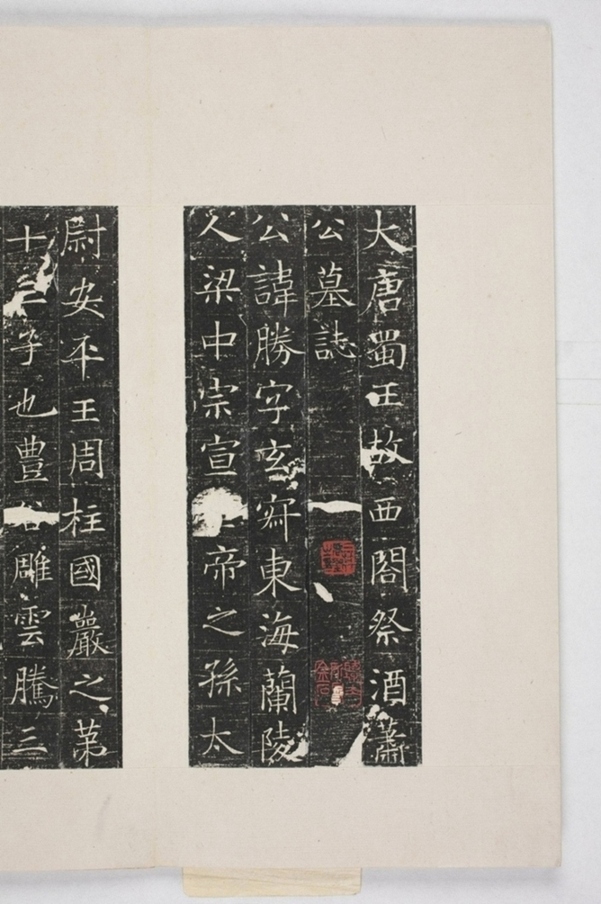 大唐蜀王故西閤祭酒蕭
公墓誌
公諱勝字玄寂東海蘭陵
人梁中宗宣帝之孫太
尉安平王周柱國巖之第
十三子也豊雕雲騰三